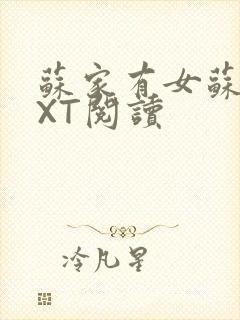 蘇家有女蘇
XT閱讀
冷凡星